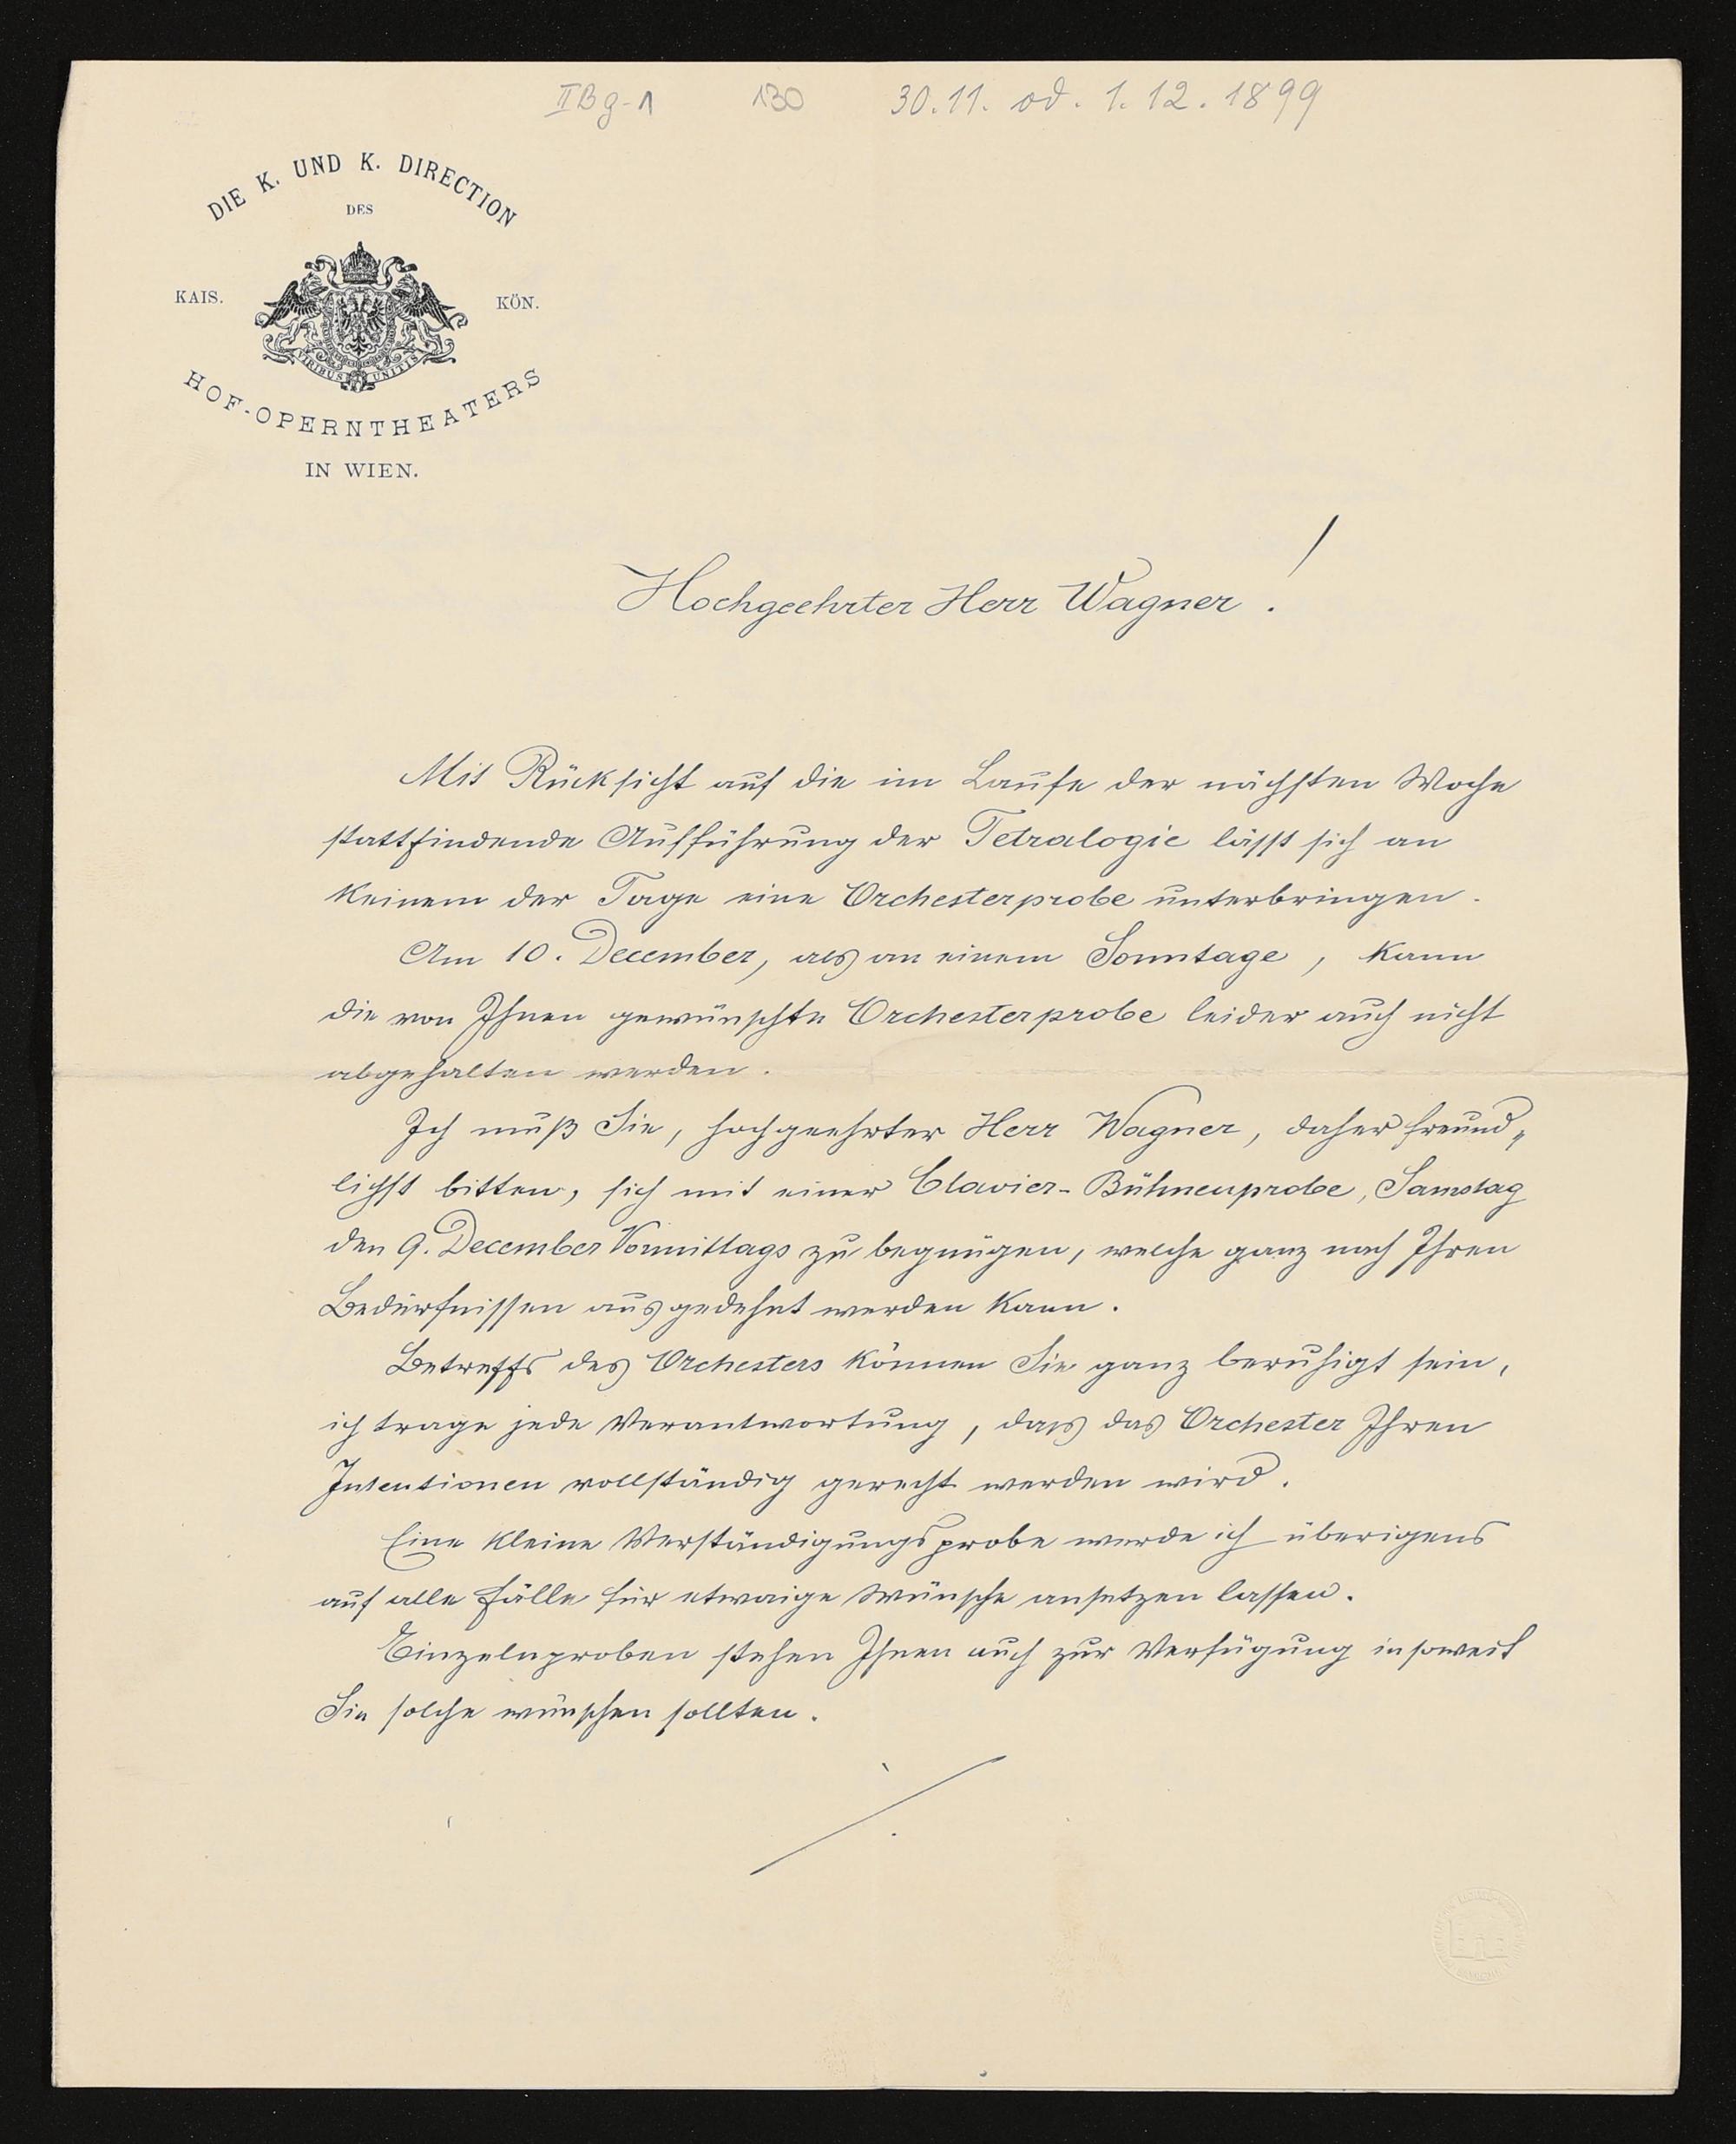 IIBg-1 130 30.11. od. 1.12.1899
DIE K. UND K. DIRECTION
DES
KAIS. KÖN.
VIRIBUS UNITIS
HOF-OPERNTHEATERS
IN WIEN.
Hochgeehrter Herr Wagner!
Mit Rücksicht auf die im Laufe der nächsten Woche
stattfindende Aufführung der Tetralogie lässt sich an
keinem der Tage eine Orchesterprobe unterbringen.
Am 10. December, als an einem Sonntage, kann
die von Ihnen gewünschte Orchesterprobe leider auch nicht
abgehalten werden.
Ich muß Sie, hochgeehrter Herr Wagner, daher freund„
lichst bitten, sich mit einer Clavier-Bühnenprobe, Samstag
den 9. December Vormittags zu begnügen, welche ganz nach Ihren
Bedürfnissen ausgedehnt werden kann.
Betreffs des Orchesters können Sie ganz beruhigt sein,
ich trage jede Verantwortung, dass das Orchester Ihren
Intentionen vollständig gerecht werden wird.
Eine kleine Verständigungsprobe werde ich überigens
auf alle Fälle für etwaige Wünsche ansetzen lassen.
Einzelnproben stehen Ihnen auch zur Verfügung insoweit
Sie solche wünschen sollten.